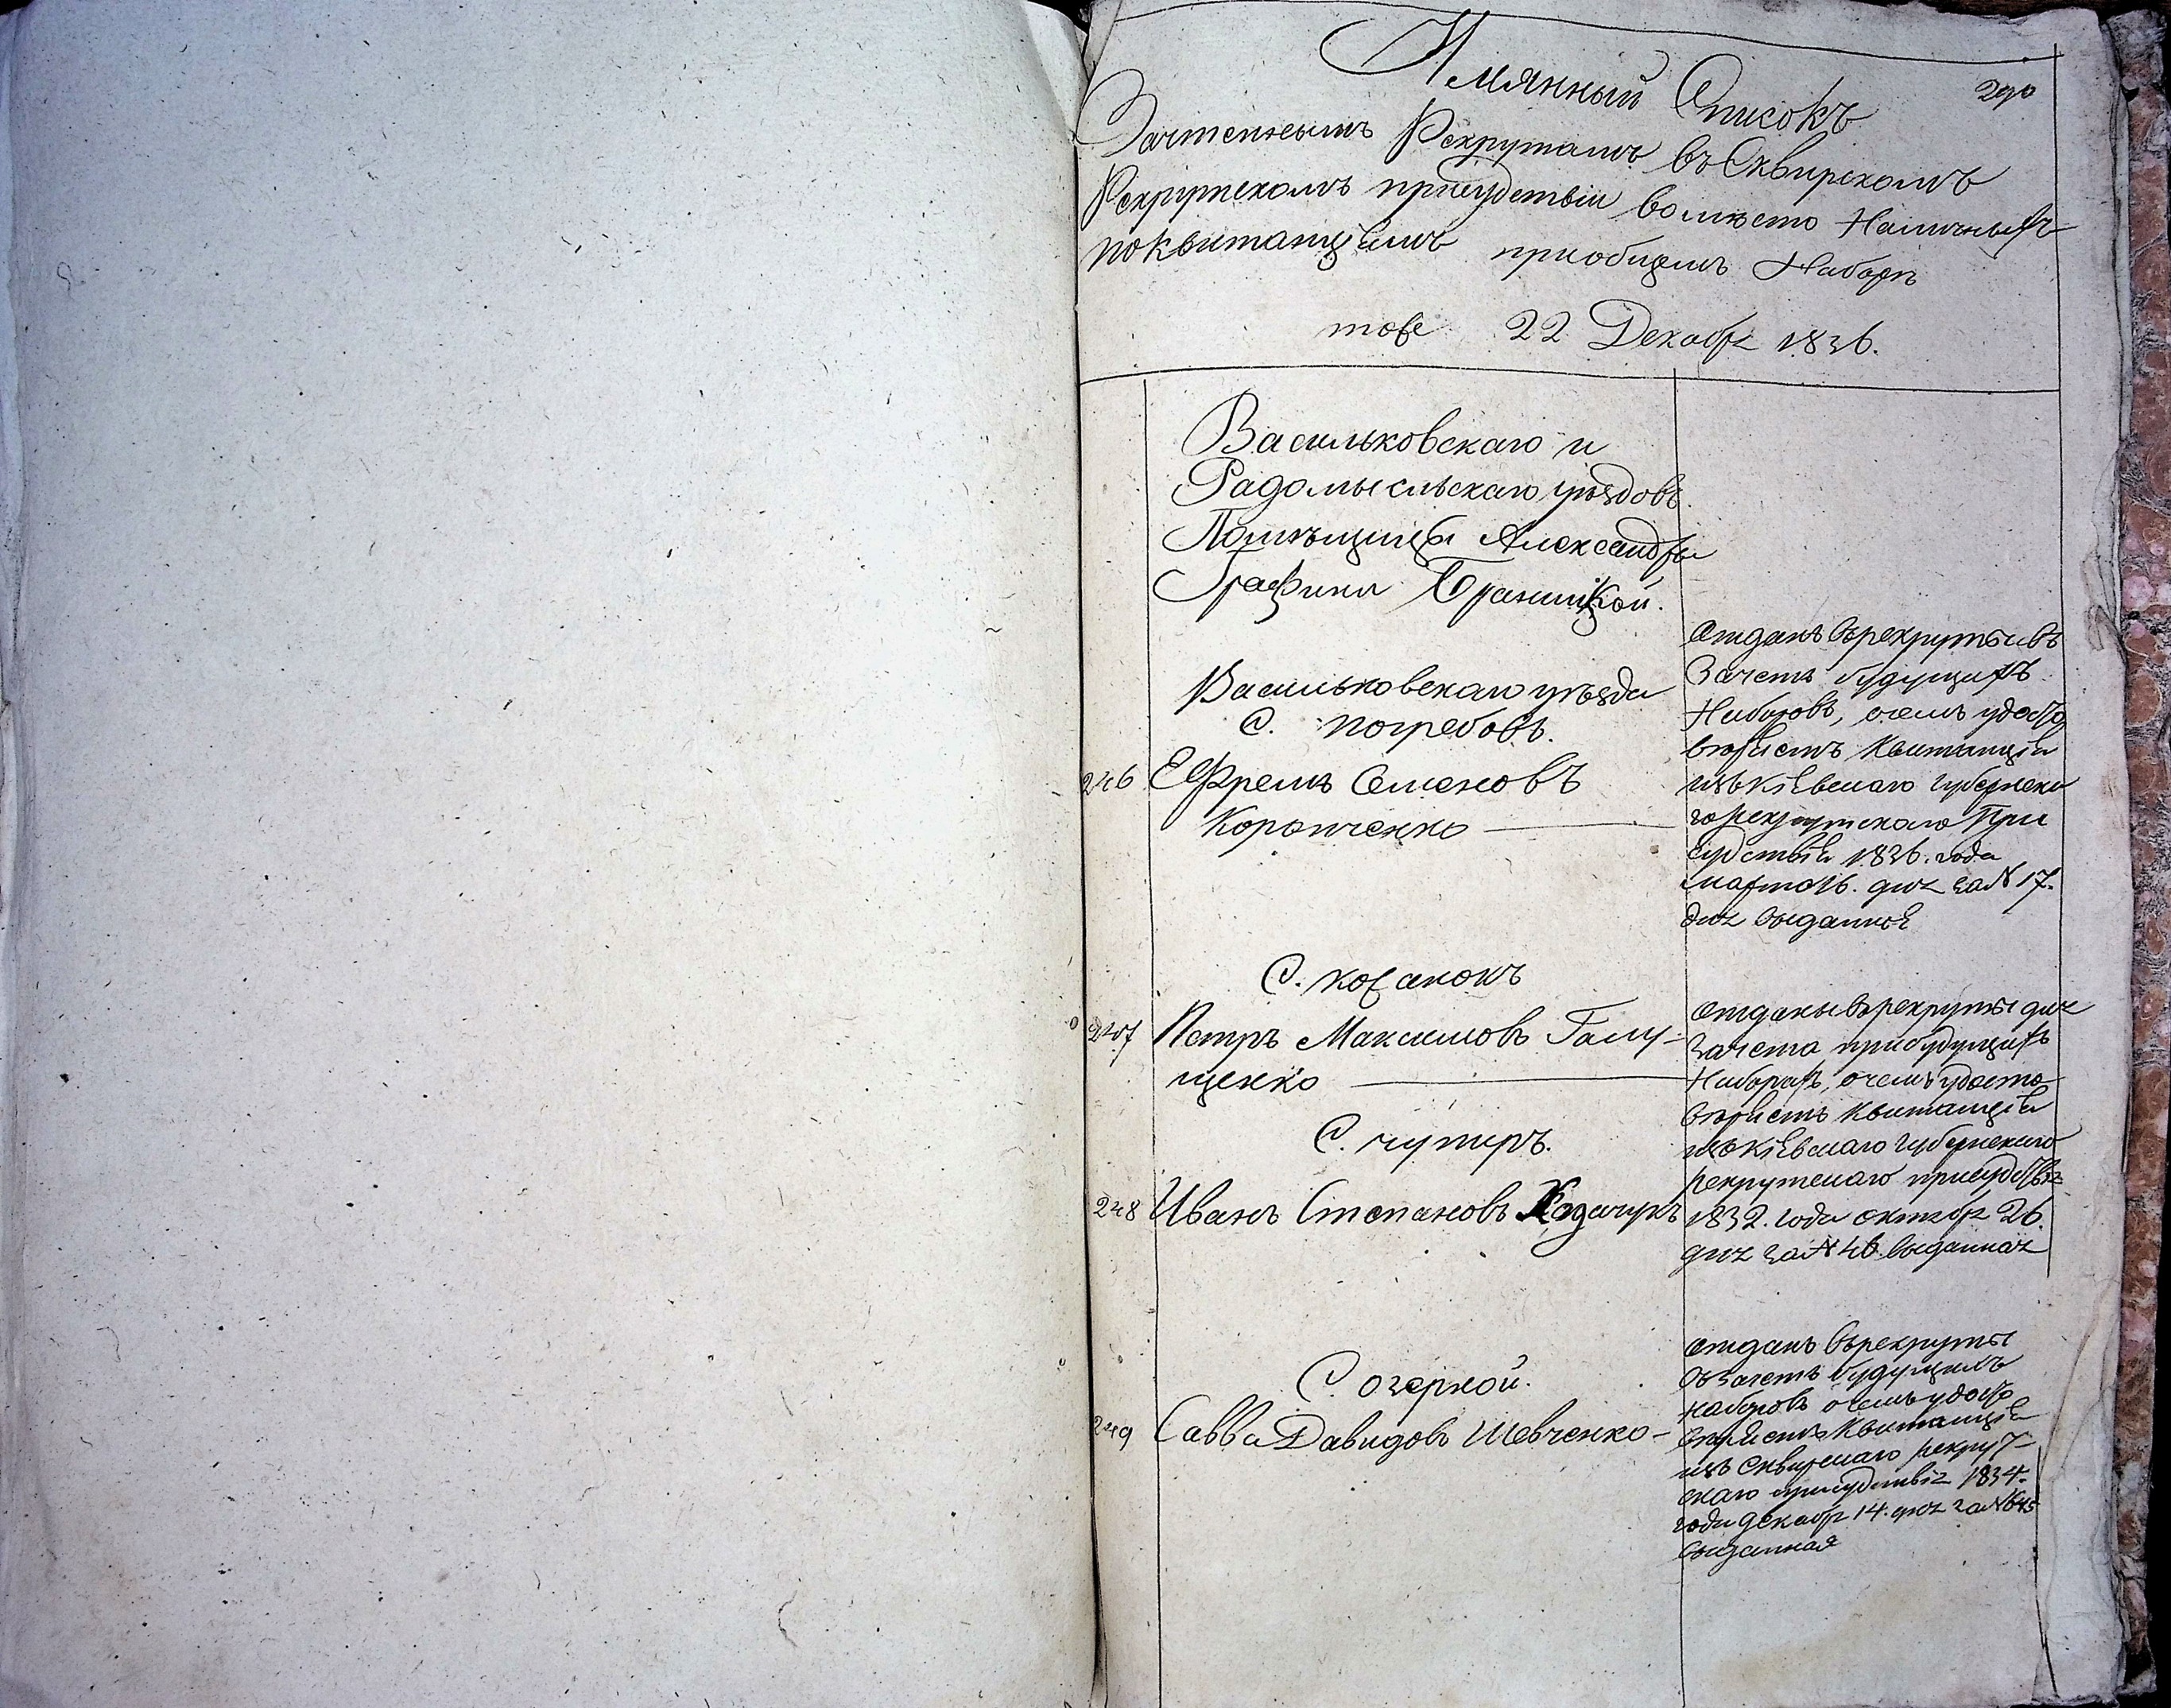 290
Имянный Списокъ
Зачтеннымъ Рекрутамъ въ Сквирскомъ
Рекрутскомъ присудствіи вомѣсто Наличныхъ
поквитанціямъ приобщемъ Наборѣ
тове 22 Декабря 1836.
Васильковскаго и
Радомысльскаго уѣздовъ.
Помѣщицы Александры
Графини Браницкой.
Васильковскаго уѣзда
С. погребовъ.
246 Ефремъ Семеновъ
отданъ върекруты въ
Зачетъ будущихъ
Наборовъ, очемъ удосто
вѣряетъ Квитанція
изъ Кіевскаго Губернска
го рекрутскаго При
судствія 1836. года
марта 16. дня за № 17.
дня выданноя
С. кожанокъ
247 Петръ Максимовъ Галу-
щенко
С. чупиръ.
248 Иванъ Степановъ
отданы върекруты для
Зачета прибудущихъ
Наборахъ, очемъ удосто
вѣряетъ Квитанція
изъ Кіевскаго Губернскаго
рекрутскаго присудствія
1832. года октября 26.
дня за № 46. выданная
С. озерной.
249 Савва Давидовъ Шевченко-
отданъ върекруты
въ зачетъ будущимъ
наборовъ очемъ удосто
вѣряетъ Квитанція
изъ Сквирскаго рекрут-
скаго присудствія 1834.
года декабря 14. дня за №
выданная